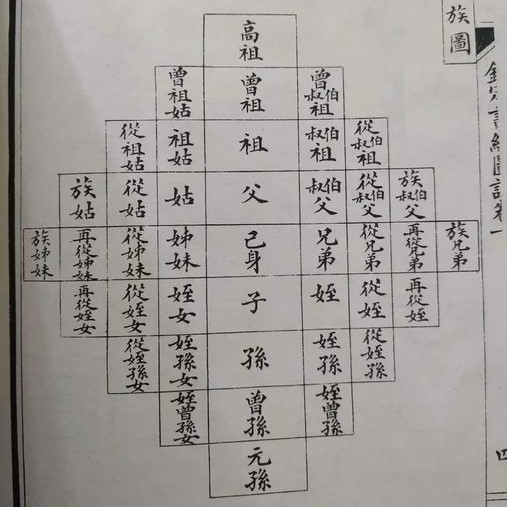 欽定書經圖說卷一
四
族圖
高祖
曾伯叔祖
曾祖
曾祖姑
從伯叔祖
伯叔祖
祖
祖姑
從祖姑
族伯叔父
從伯叔父
伯叔父
父
姑
從姑
族姑
族兄弟
再從兄弟
從兄弟
兄弟
己身
姊妹
從姊妹
再從姊妹
族姊妹
再從姪
從姪
姪
子
姪女
從姪女
再從姪女
從姪孫
姪孫
孫
姪孫女
從姪孫女
姪曾孫
曾孫
姪曾孫女
元孫